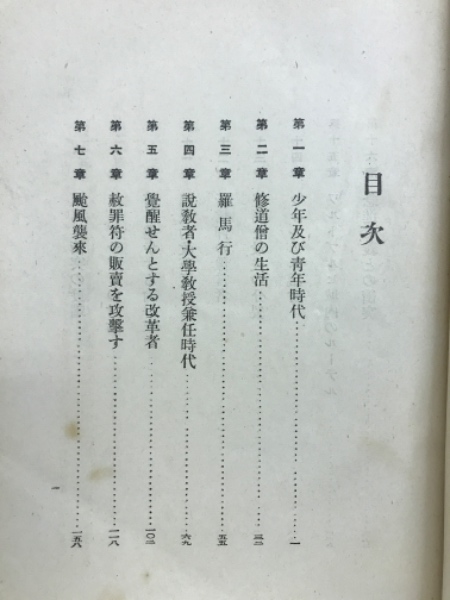 目次
第一章 少年及び靑年時代……一
第二章 修道僧の生活……三二
第三章 羅馬行……五五
第四章 說敎者・大學敎授兼任時代……六九
第五章 覺醒せんとする改革者……一〇二
第六章 赦罪符の販賣を攻擊す……一一八
第七章 颱風襲來……一五八
一